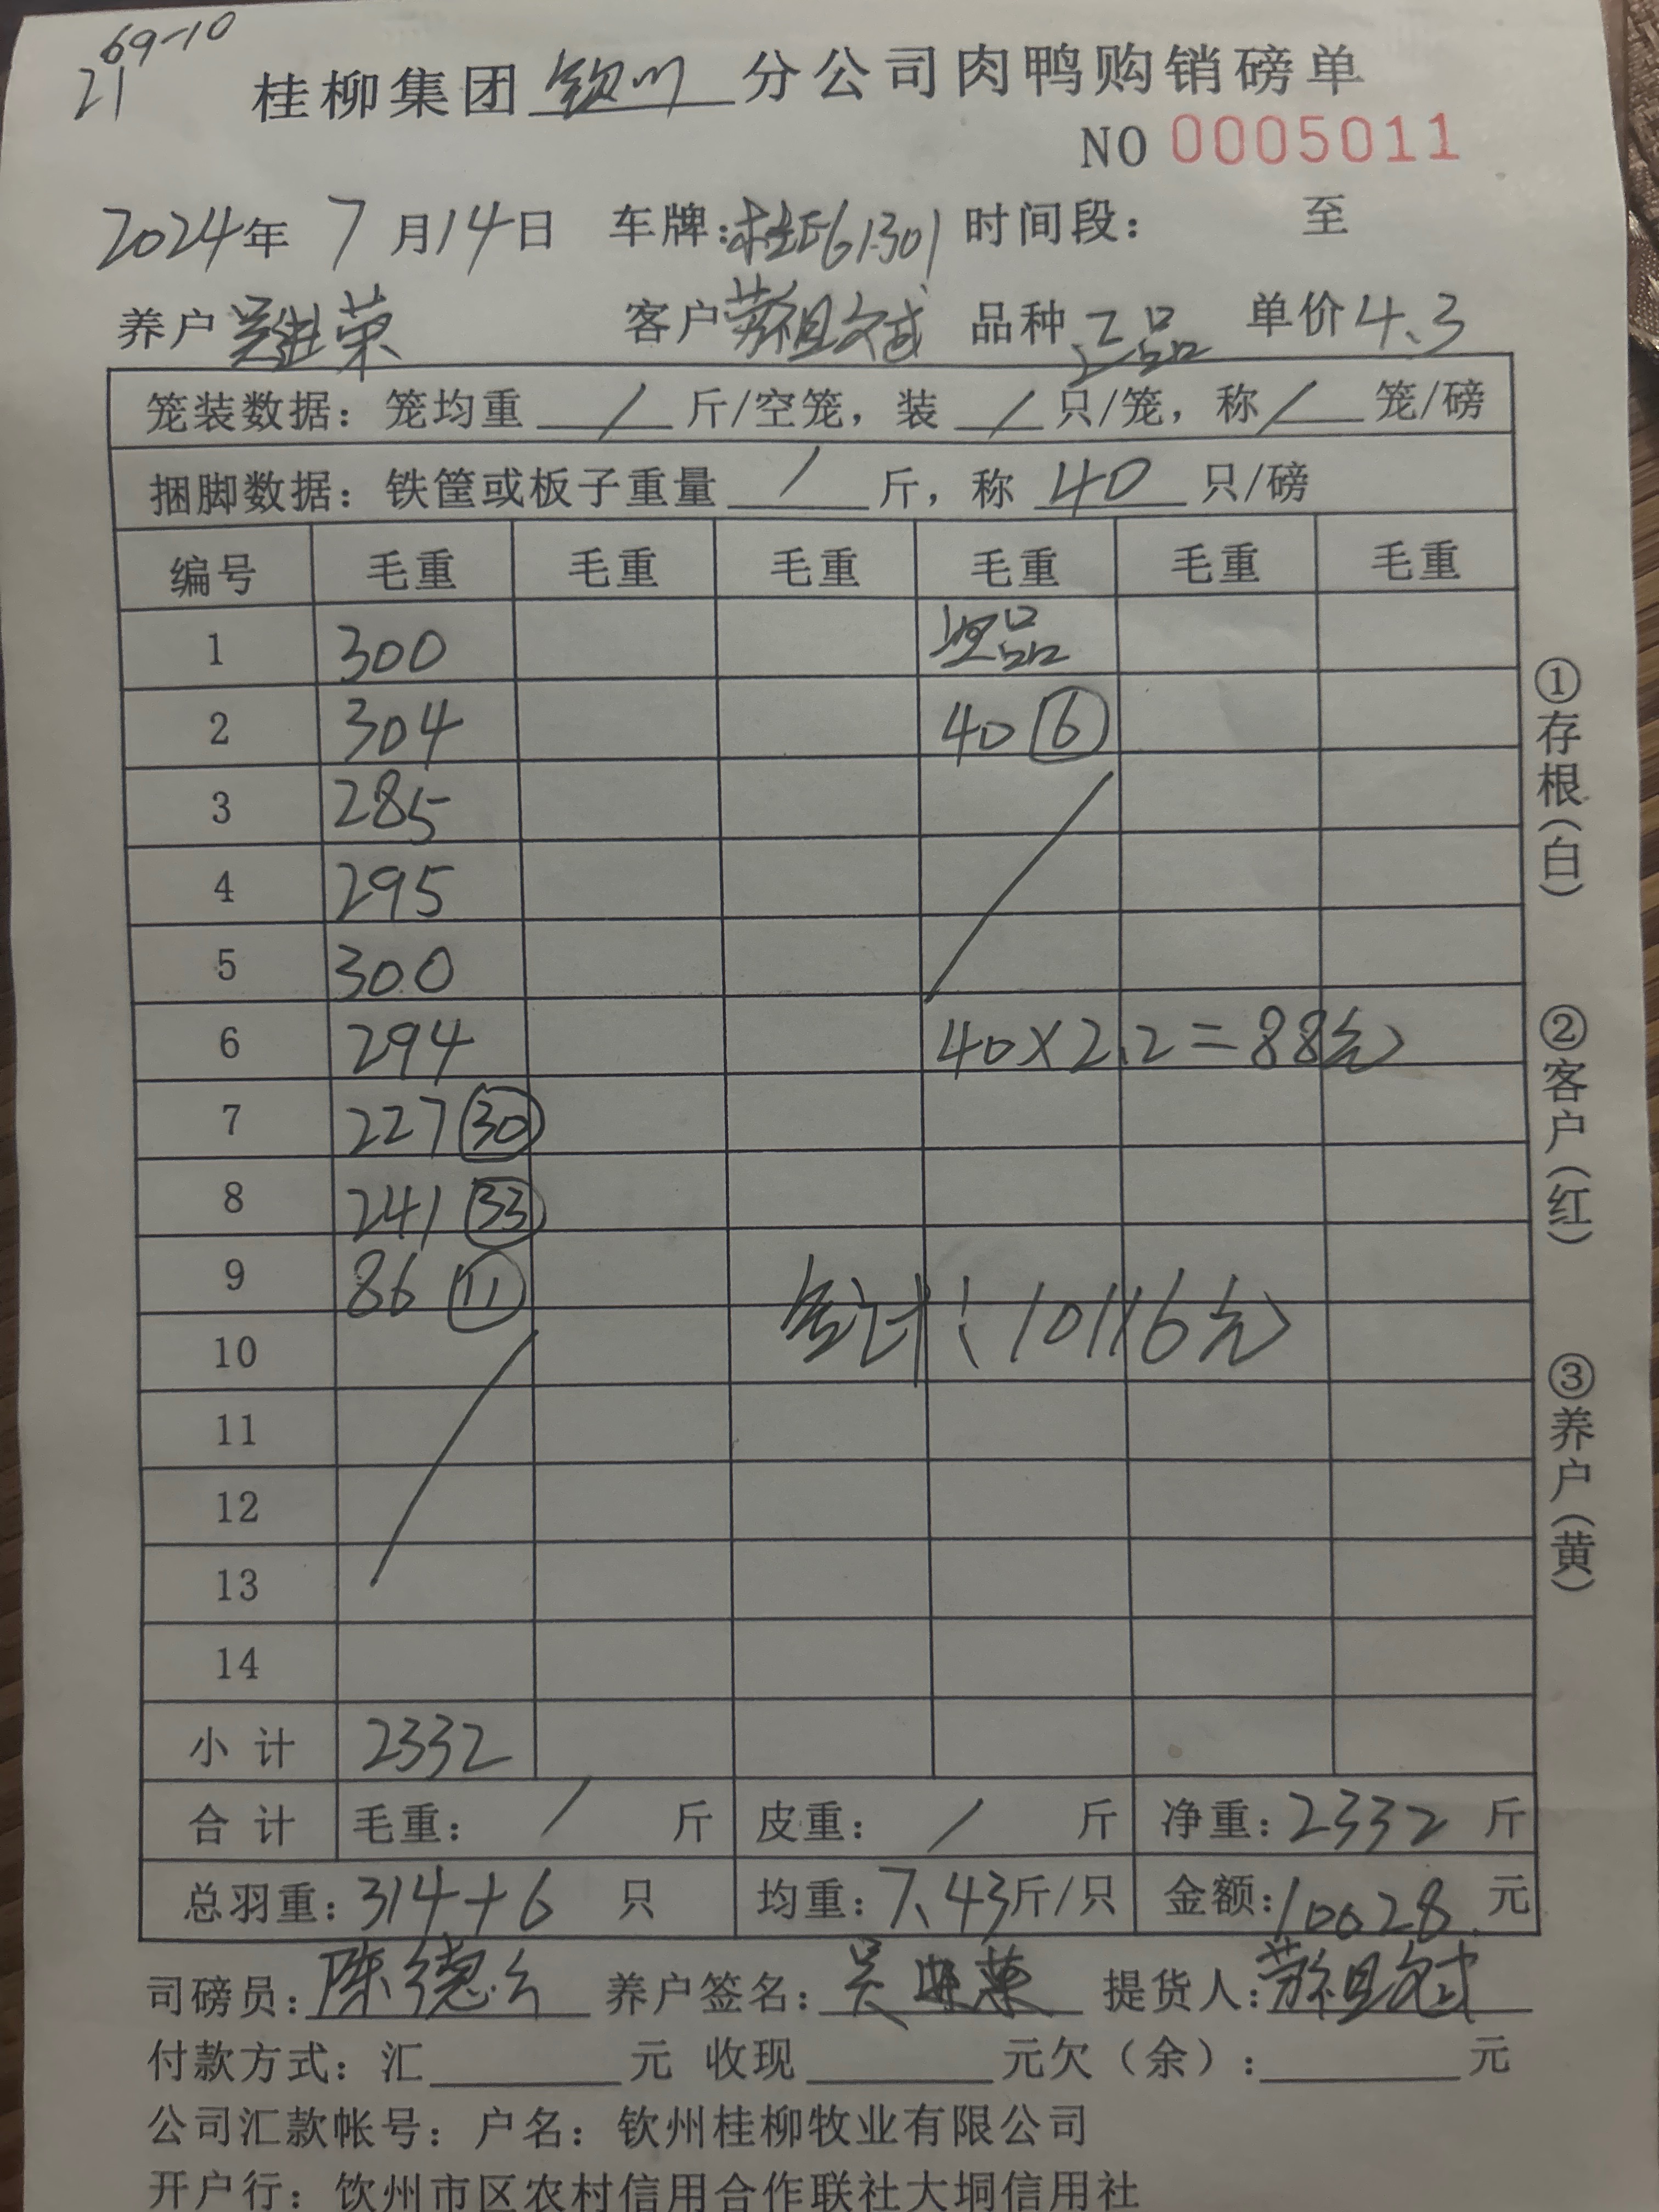 69-10
21
桂柳集团钦州分公司肉鸭购销磅单
NO 0005011
2024年7月14日 车牌:桂E61301 时间段: 至
养户 吴继荣 客户 劳祖斌 品种 正品 单价 4.3
笼装数据: 笼均重 / 斤/空笼, 装 / 只/笼, 称 / 笼/磅
捆脚数据: 铁筐或板子重量 / 斤, 称 40 只/磅
编号 毛重 毛重 毛重 毛重 毛重 毛重
1 300 品
2 304 40 ⑥
3 285
4 295
5 300
6 294 40×2.2=88元
7 227 ㉚
8 241 ㉝
9 86 ⑪
10 合计: 10116元
11
12
13
14
小计 2332
合计 毛重: / 斤 皮重: / 斤 净重: 2332 斤
总羽重: 314+6 只 均重: 7.43斤/只 金额: 10028 元
司磅员: 陈德 养户签名: 吴继荣 提货人: 劳祖斌
付款方式: 汇 元 收现 元欠(余): 元
公司汇款帐号: 户名: 钦州桂柳牧业有限公司
开户行: 钦州市区农村信用合作联社大垌信用社
①存根(白)
②客户(红)
③养户(黄)